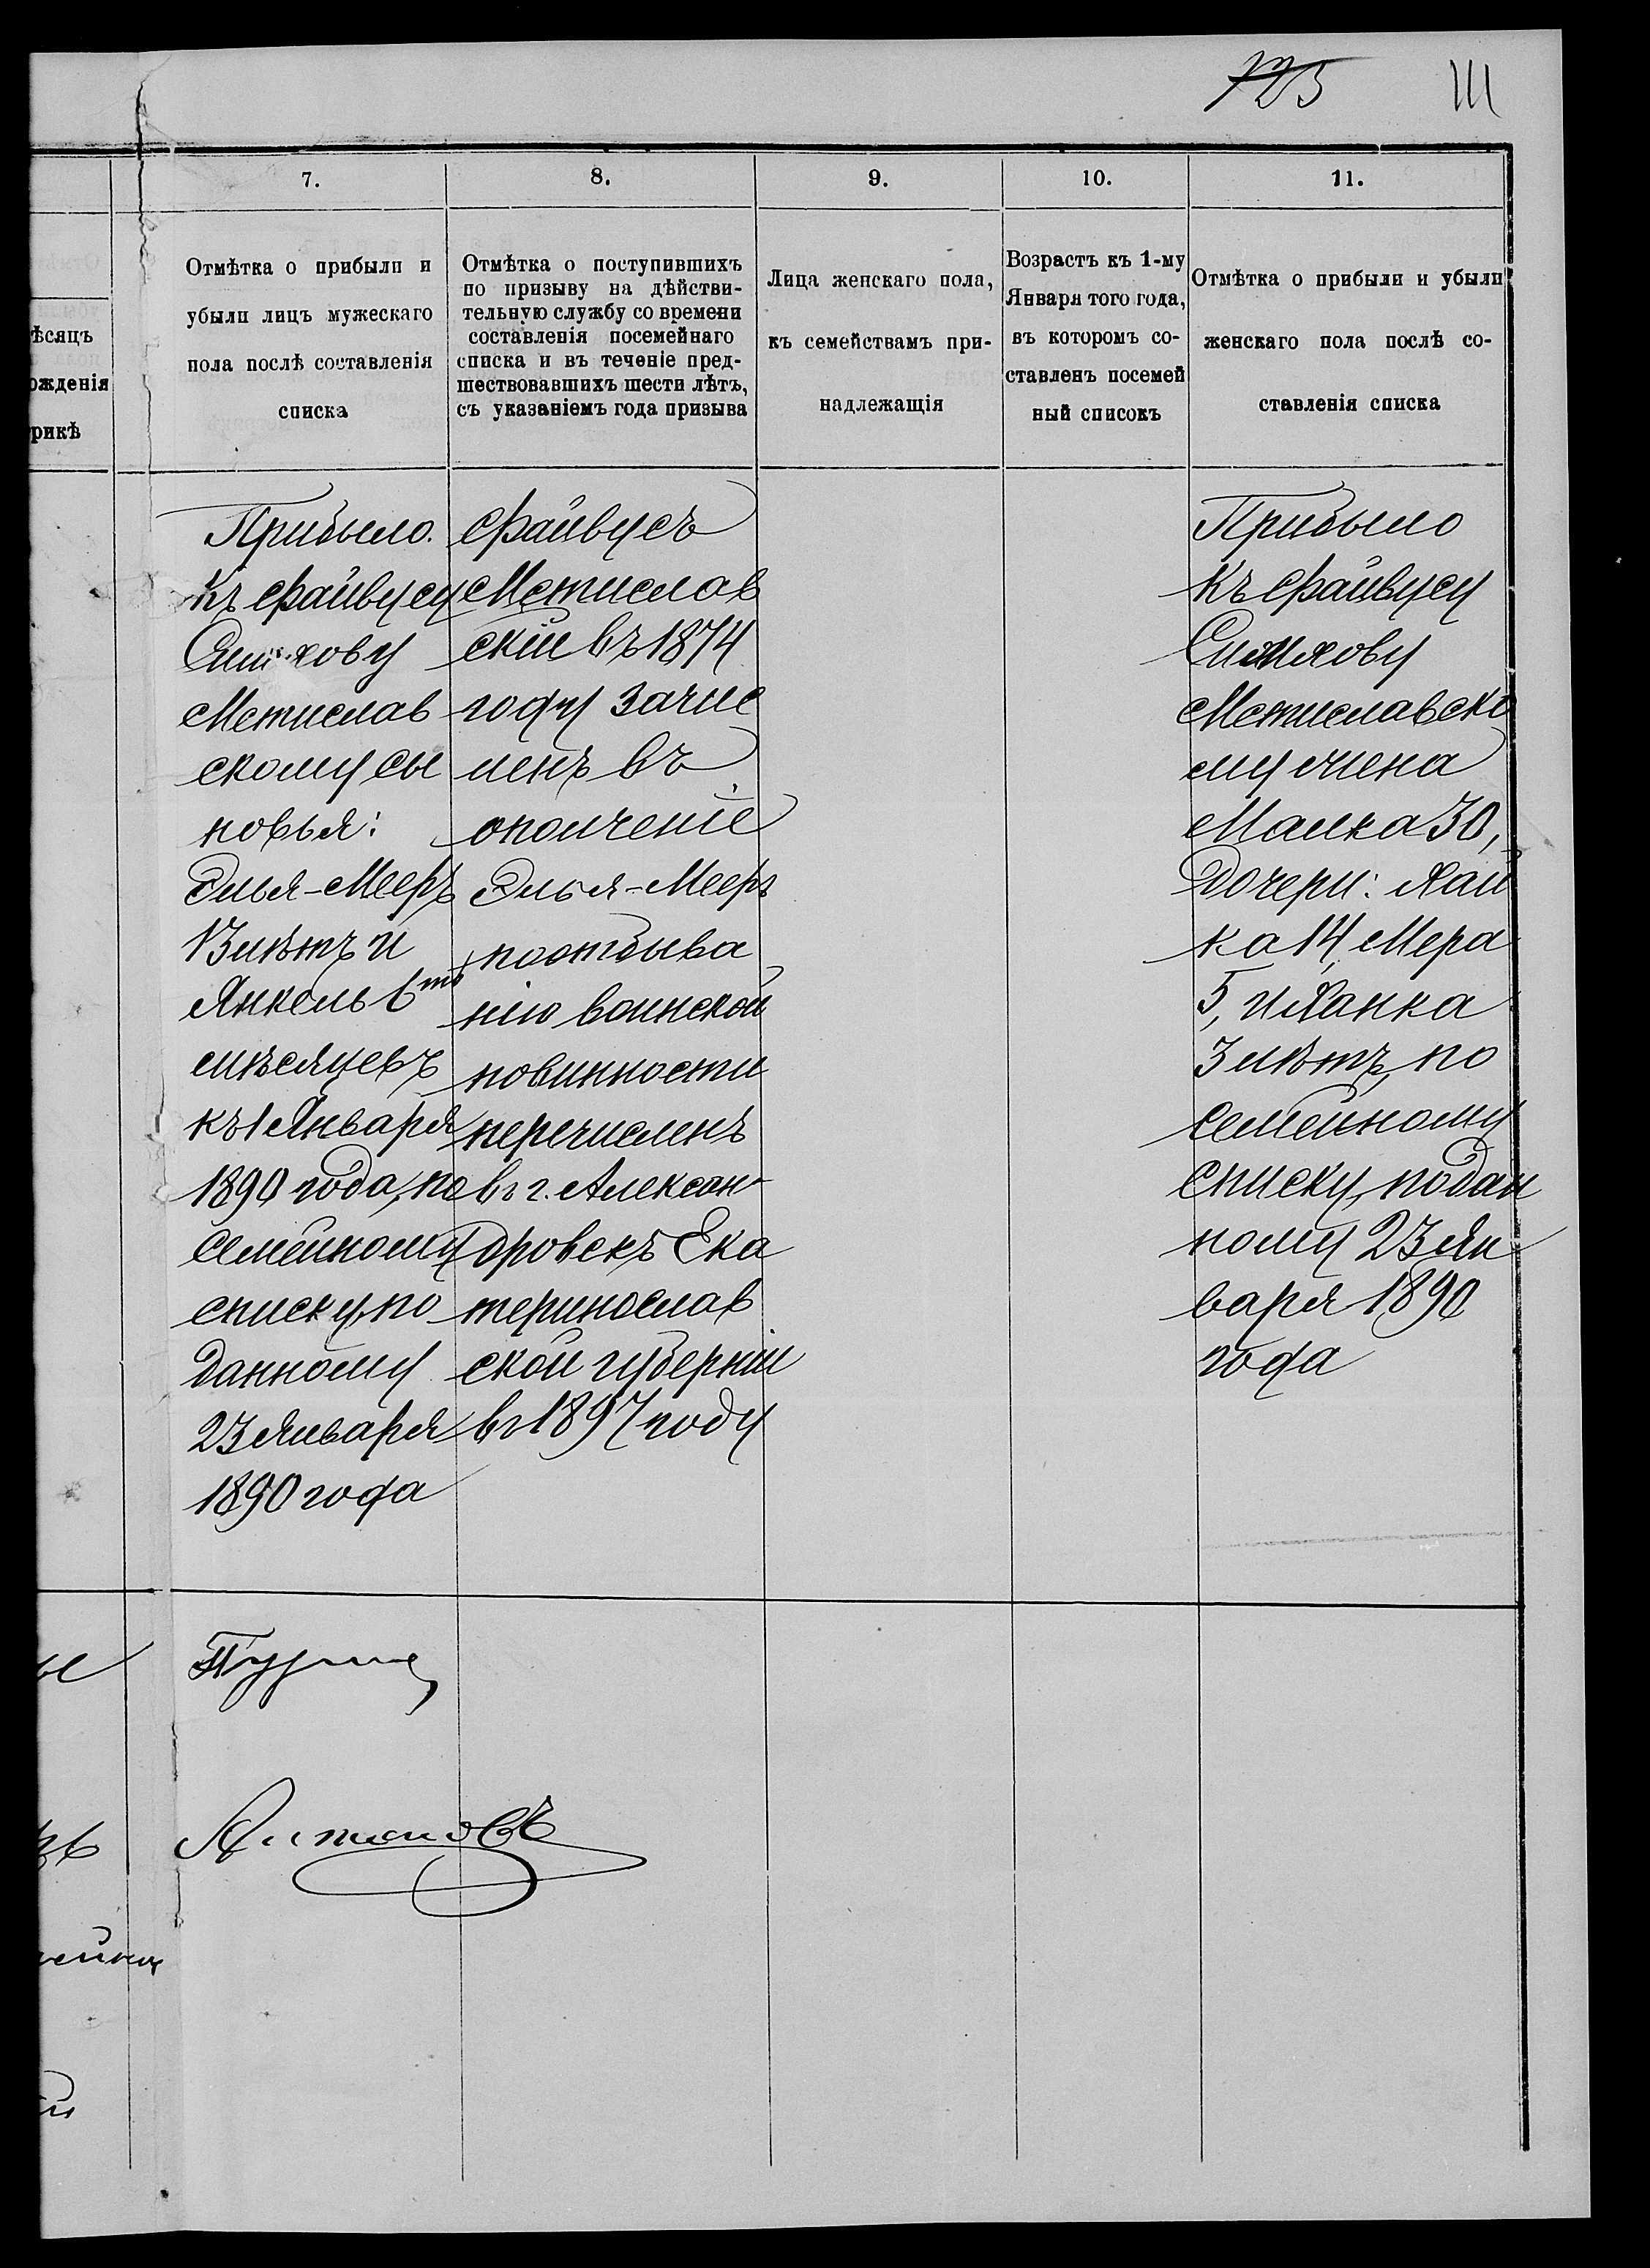 725 111
7.
8.
9.
10.
11.
ѣсяцъ
ожденія
рикѣ
Отмѣтка о прибыли и
убыли лицъ мужескаго
пола послѣ составленія
списка
Отмѣтка о поступившихъ
по призыву на дѣйстви-
тельную службу со времени
составленія посемейнаго
списка и въ теченіе пред-
шествовавшихъ шести лѣтъ,
съ указаніемъ года призыва
Лица женскаго пола,
къ семействамъ при-
надлежащія
Возрастъ къ 1-му
Января того года,
въ которомъ со-
ставленъ посемей
ный списокъ
Отмѣтка о прибыли и убыли
женскаго пола послѣ со-
ставленія списка
Прибыло.
къ Файвусу
Мстислав
скому сы
новья:
Элья-Мееръ
13 лѣтъ и
Янкель 6ти
мѣсяцевъ
къ 1 Января
1890 года, по
семейному
списку, по
данному
23 Января
1890 года
Файвусъ
Мстислав
скій въ 1874
году зачис
ленъ въ
ополченіе
Элья-Мееръ
по отбыва
нію воинской
повинности
перечисленъ
въ г. Алексан-
дровскъ Ека
теринослав
ской губерніи
въ 1897 году
Прибыло
къ Файвусу
Мстиславско
му жена
Малка 30,
Дочери: Хай
ка 14, Мера
5, и Ханка
3 лѣтъ, по
семейному
списку, подан
ному 23 Ян
варя 1890
года